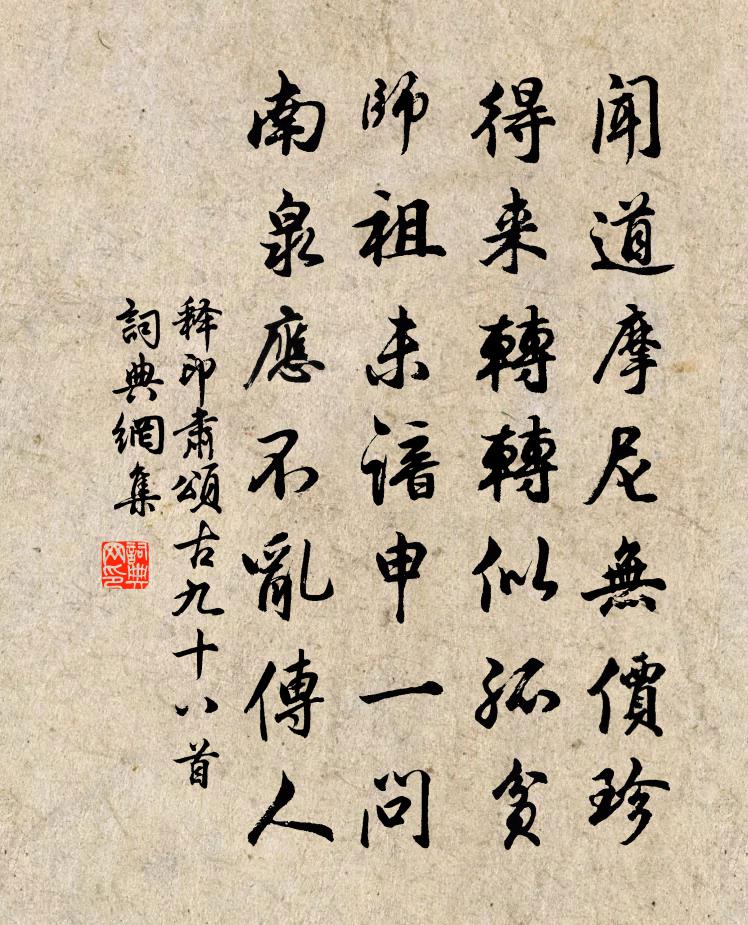 聞道摩尼無價珍
得来轉轉似孤貧
師祖未諳申一問
南泉應不亂傳人
释印肅頌古九十八首
詞典網集
詞典网印